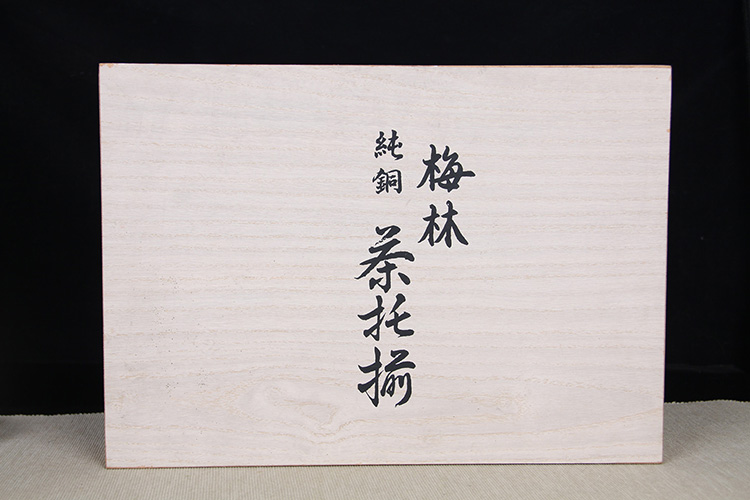 梅林
純銅
茶托揃